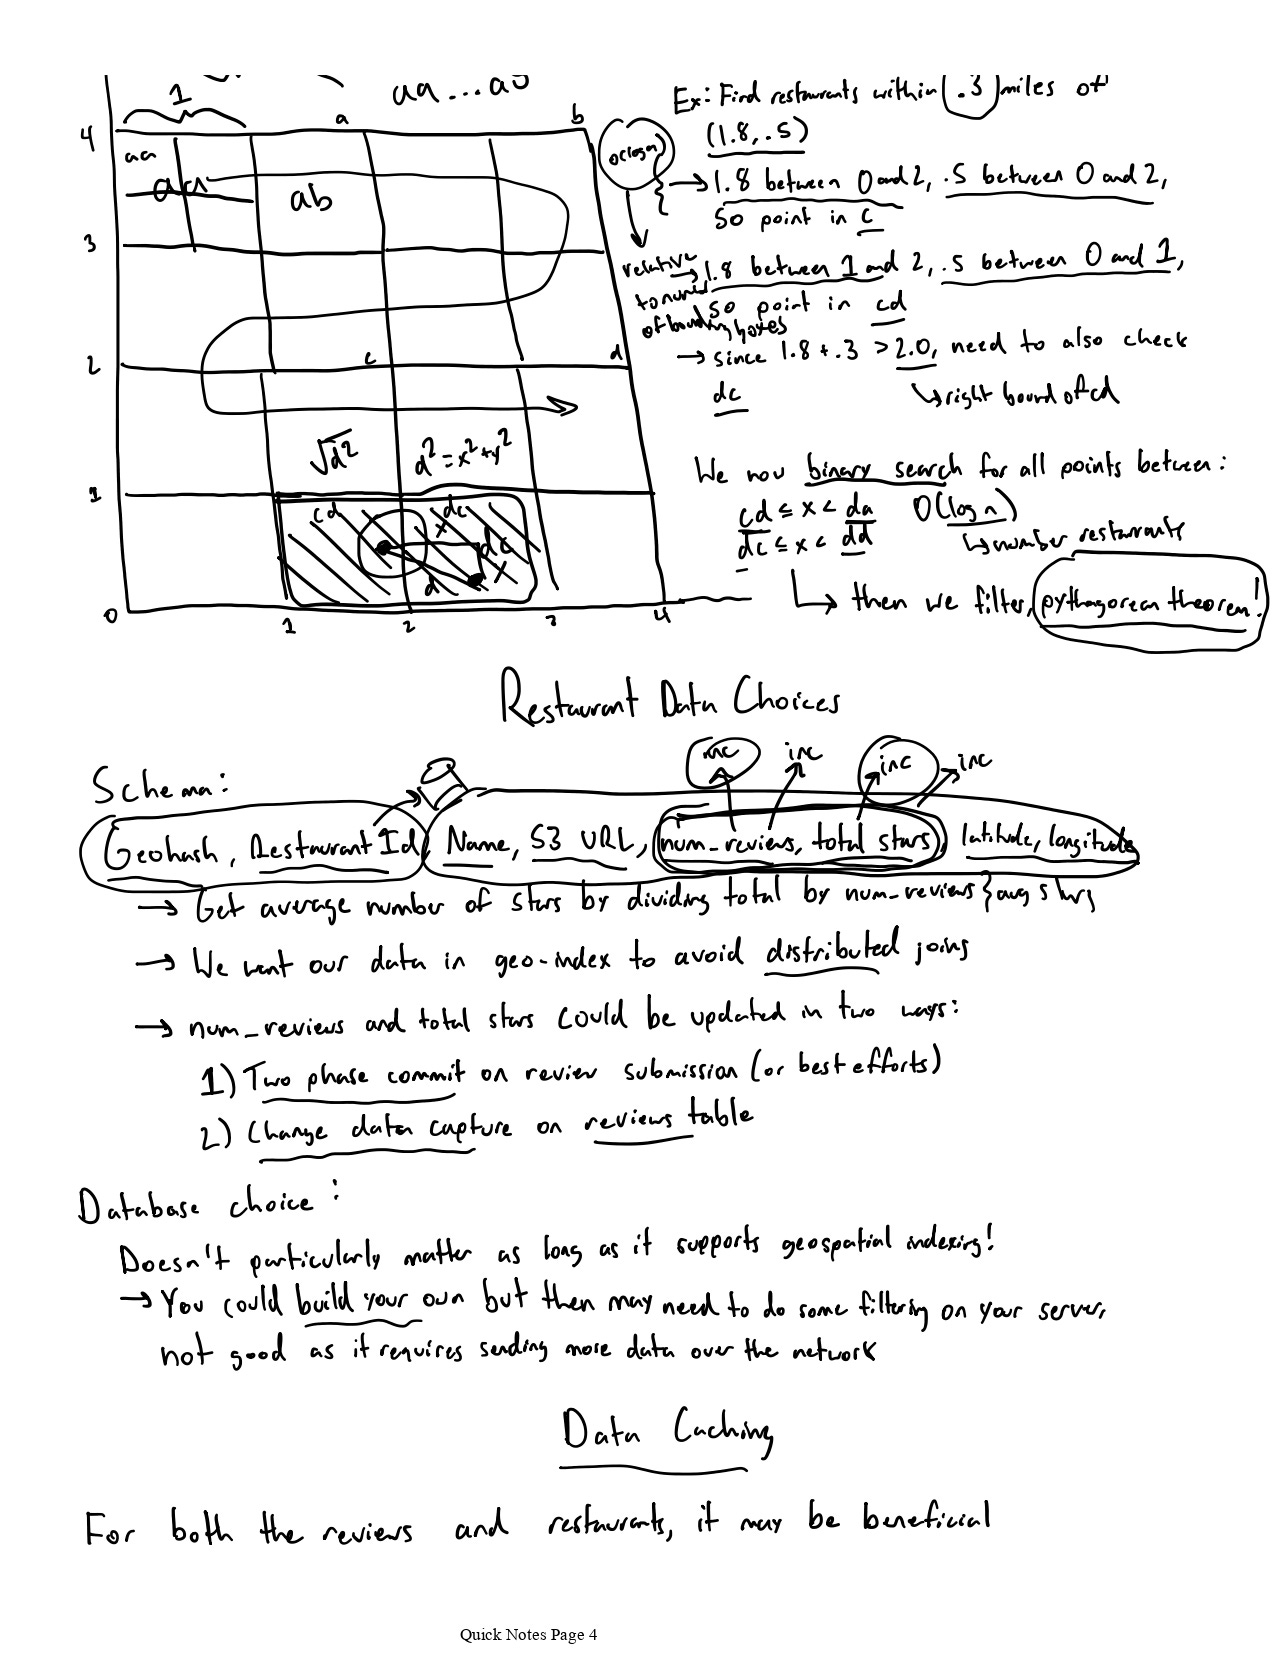 1
aa...
4
a
b
aa
aa
ab
3
2
c
d
√d²
d² = x² + y²
1
cd
dc
x
dc
d
x
0
1
2
3
4
Ex: Find restaurants within .3 miles of
(1.8, .5)
O(log n)
→ 1.8 between 0 and 2, .5 between 0 and 2,
so point in c
relative
to number
of bounding boxes
→ 1.8 between 1 and 2, .5 between 0 and 1,
so point in cd
→ since 1.8 + .3 > 2.0, need to also check
dc
↳ right bound of cd
We now binary search for all points between:
cd ≤ x < da O(log n)
dc ≤ x < dd
↳ number restaurants
↳ then we filter, pythagorean theorem!
Restaurant Data Choices
inc inc inc inc
Schema:
Geohash, Restaurant Id, Name, S3 URL, num_reviews, total stars, latitude, longitude
→ Get average number of stars by dividing total by num_reviews } avg stars
→ We want our data in geo-index to avoid distributed joins
→ num_reviews and total stars could be updated in two ways:
1) Two phase commit on review submission (or best efforts)
2) Change data capture on reviews table
Database choice:
Doesn't particularly matter as long as it supports geospatial indexing!
→ You could build your own but then may need to do some filtering on your server,
not good as it requires sending more data over the network
Data Caching
For both the reviews and restaurants, it may be beneficial
Quick Notes Page 4